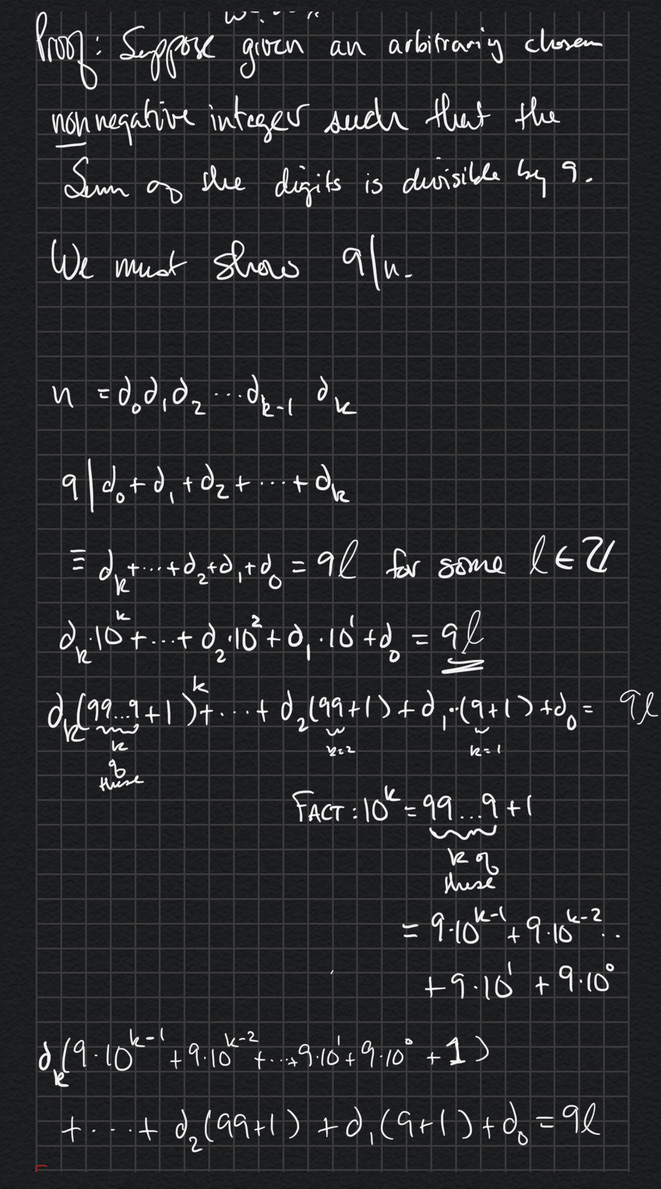 Proof: Suppose given an arbitrarily chosen
nonnegative integer such that the
Sum of the digits is divisible by 9.
We must show 9|n.
n = d₀d₁d₂ ⋯ dₖ₋₁ dₖ
9 | d₀ + d₁ + d₂ + ⋯ + dₖ
≡ dₖ + ⋯ + d₂ + d₁ + d₀ = 9l for some l ∈ ℤ
dₖ·10ᵏ + ⋯ + d₂·10² + d₁·10¹ + d₀ = 9l
dₖ(99…9 + 1)ᵏ + ⋯ + d₂(99+1) + d₁·(9+1) + d₀ = 9l
k of these
k=2
k=1
FACT: 10ᵏ = 99…9 + 1
k of
these
= 9·10ᵏ⁻¹ + 9·10ᵏ⁻² ..
+ 9·10¹ + 9·10⁰
dₖ(9·10ᵏ⁻¹ + 9·10ᵏ⁻² + ⋯ + 9·10¹ + 9·10⁰ + 1)
+ ⋯ + d₂(99+1) + d₁(9+1) + d₀ = 9l